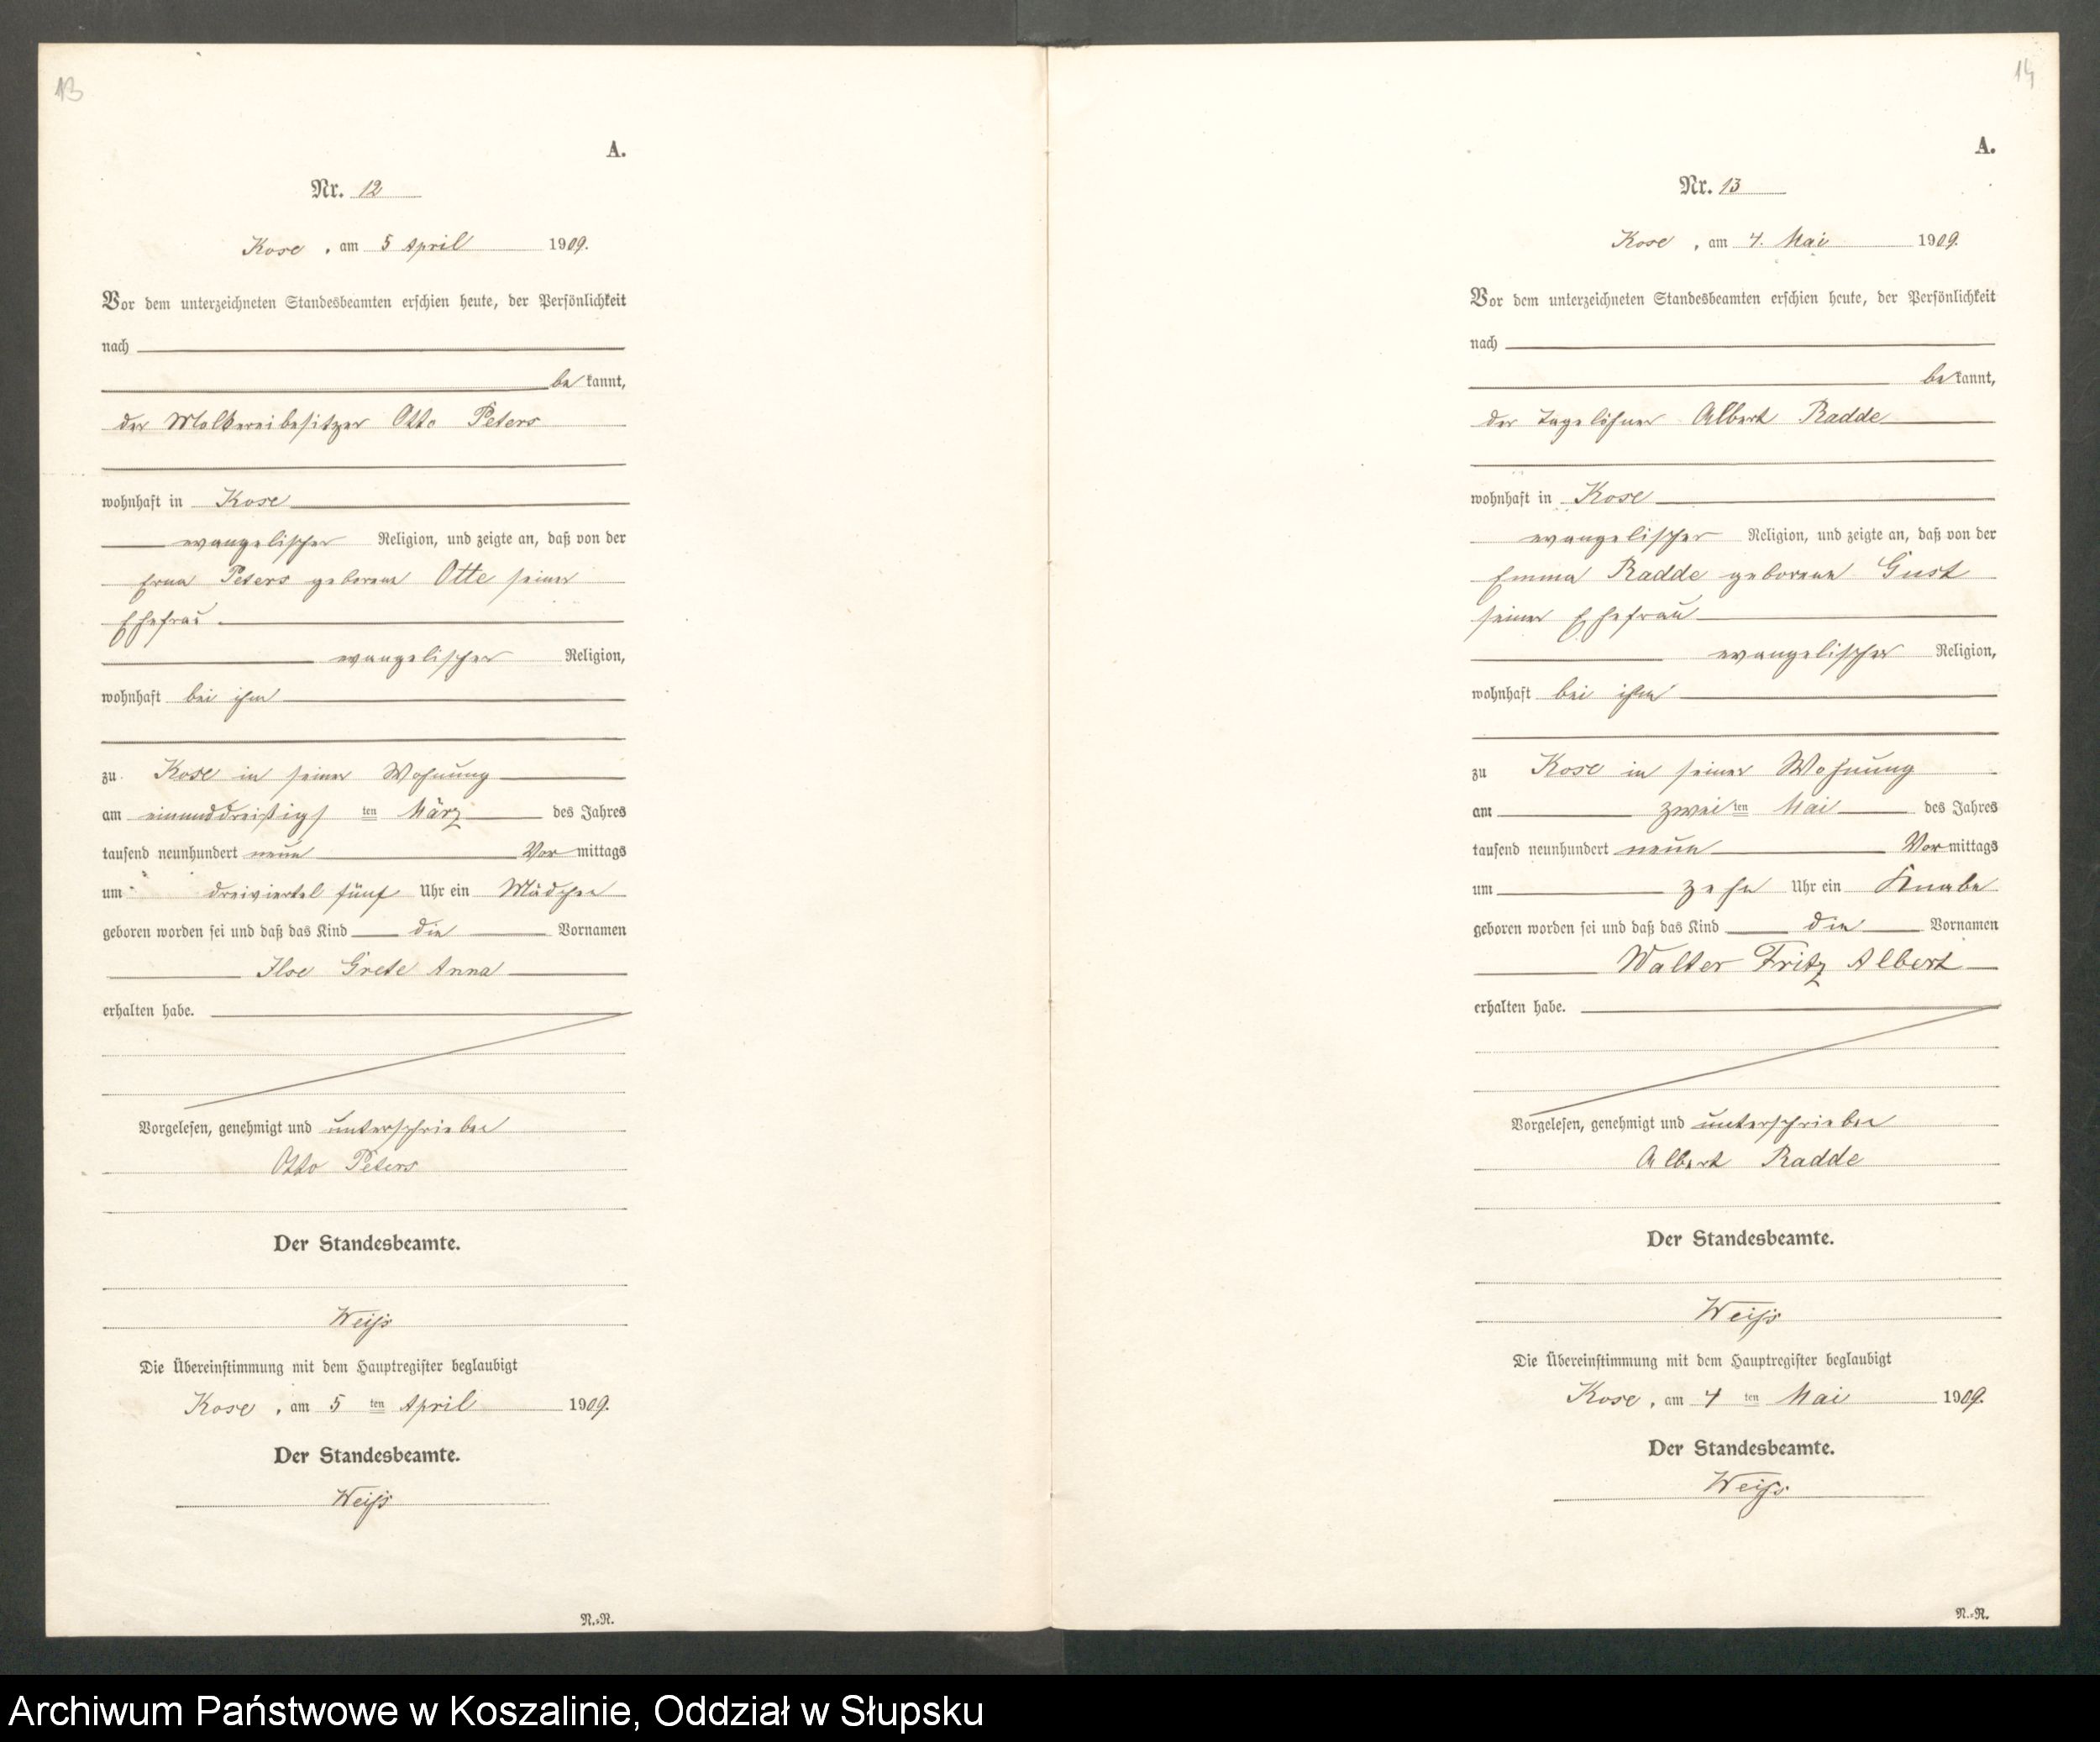 13
A.
Nr. 12
Kose, am 5 April 1909.
Vor dem unterzeichneten Standesbeamten erschien heute, der Persönlichkeit
nach
bekannt,
der Molkereibesitzer Otto Peters
wohnhaft in Kose
evangelischer Religion, und zeigte an, daß von der
Erna Peters geborene Otte seiner
Ehefrau
evangelischer Religion,
wohnhaft bei ihm
zu Kose in seiner Wohnung
am einunddreißigsten März des Jahres
tausend neunhundert neun Vormittags
um dreiviertel fünf Uhr ein Mädchen
geboren worden sei und daß das Kind die Vornamen
Ilse Grete Anna
erhalten habe.
Vorgelesen, genehmigt und unterschrieben
Otto Peters
Der Standesbeamte.
Weiß
Die Übereinstimmung mit dem Hauptregister beglaubigt
Kose, am 5ten April 1909.
Der Standesbeamte.
Weiß
N.=R.
14
A.
Nr. 13
Kose, am 4. Mai 1909.
Vor dem unterzeichneten Standesbeamten erschien heute, der Persönlichkeit
nach
bekannt,
der Tagelöhner Albert Radde
wohnhaft in Kose
evangelischer Religion, und zeigte an, daß von der
Emma Radde geborene Gust
seiner Ehefrau
evangelischer Religion,
wohnhaft bei ihm
zu Kose in seiner Wohnung
am zweiten Mai des Jahres
tausend neunhundert neun Vormittags
um zehn Uhr ein Knabe
geboren worden sei und daß das Kind die Vornamen
Walter Fritz Albert
erhalten habe.
Vorgelesen, genehmigt und unterschrieben
Albert Radde
Der Standesbeamte.
Weiß
Die Übereinstimmung mit dem Hauptregister beglaubigt
Kose, am 4ten Mai 1909.
Der Standesbeamte.
Weiß
N.=R.
Archiwum Państwowe w Koszalinie, Oddział w Słupsku